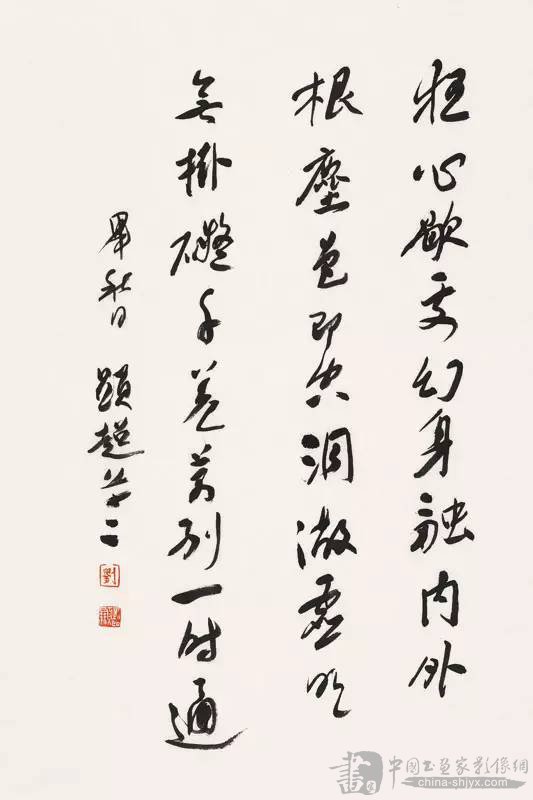 狂心歇处幻身融内外
根尘色即空洞澈虚明
无挂碍千差万别一时通
秋日
显超
刘
中国书画家影像网
china-shjyx.com